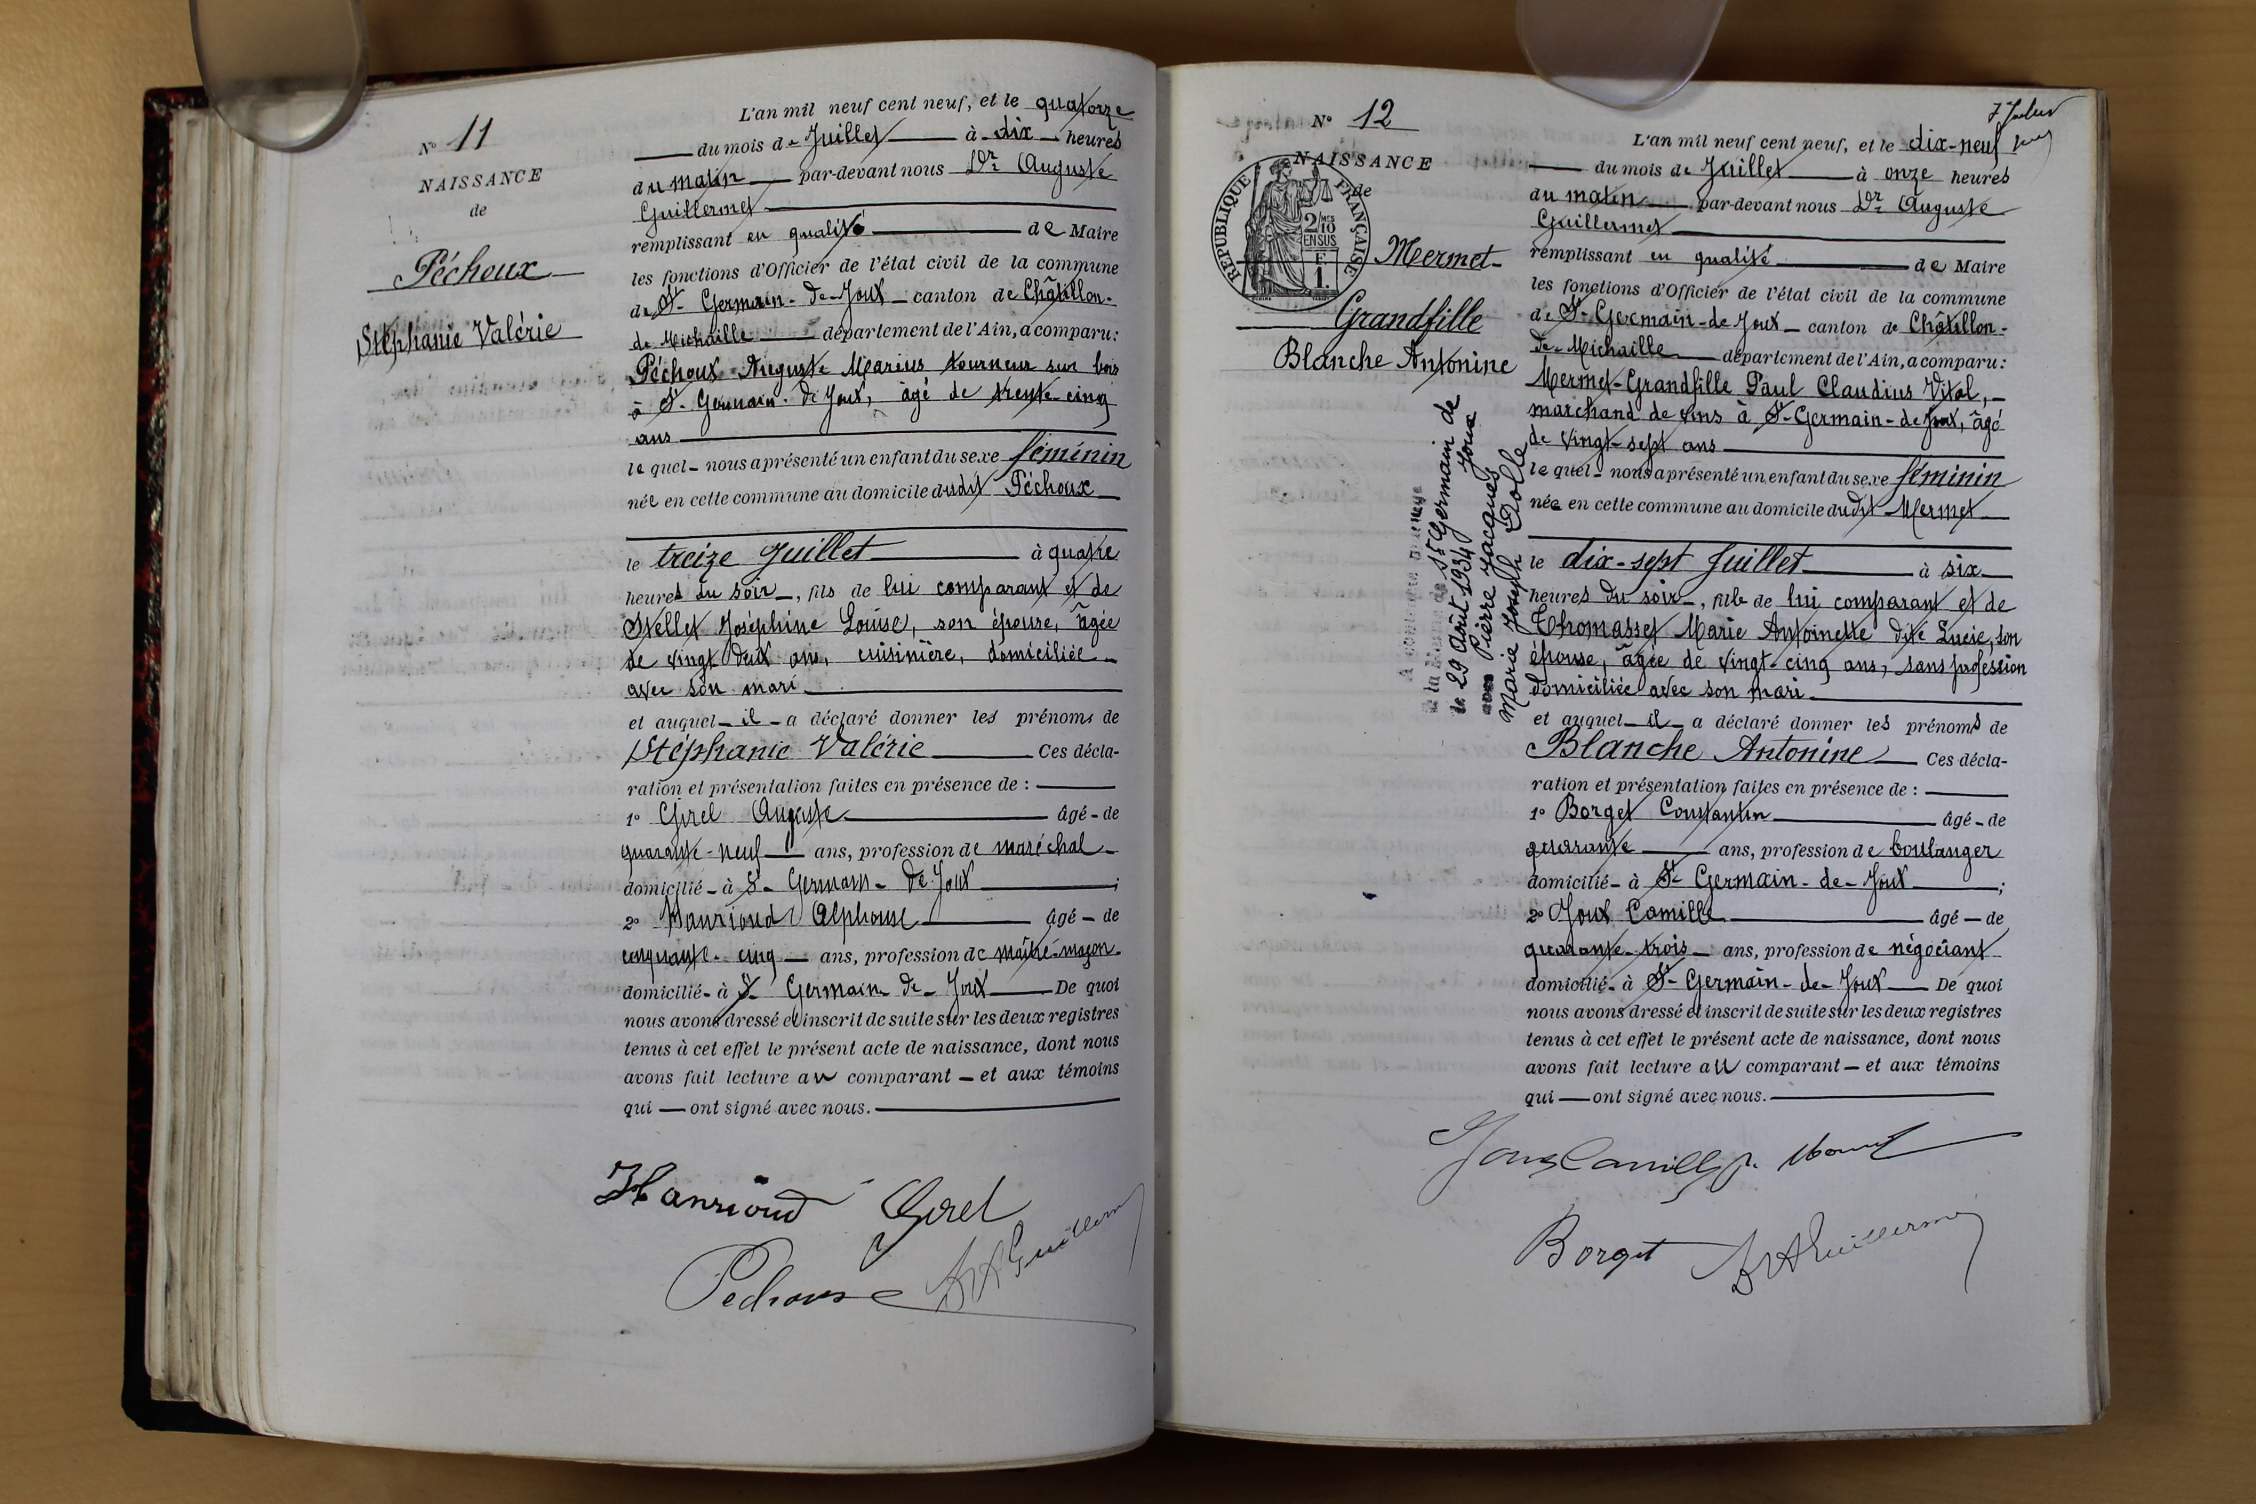 N° 11
NAISSANCE
de
Péchoux
Stéphanie Valérie
L'an mil neuf cent neuf, et le quatorze
du mois de Juillet à dix heures
du matin par-devant nous Dr Auguste
Guillermet
remplissant en qualité de Maire
les fonctions d'Officier de l'état civil de la commune
de St Germain-de-Joux canton de Châtillon-
de Michaille département de l'Ain, a comparu:
Péchoux Auguste Marius tourneur sur bois
à St Germain-de Joux, âgé de trente-cinq
ans
lequel nous a présenté un enfant du sexe féminin
née en cette commune au domicile dudit Péchoux
le treize Juillet à quatre
heures du soir, fils de lui comparant et de
Joséphine Louise, son épouse, âgée
de vingt deux ans, cuisinière, domiciliée
avec son mari
et auquel il a déclaré donner les prénoms de
Stéphanie Valérie Ces décla-
ration et présentation faites en présence de :
1° Girel Auguste âgé de
quarante-neuf ans, profession de maréchal
domicilié à St Germain-de-Joux ;
2° Hanrioud Alphonse âgé de
cinquante-cinq ans, profession de maître-maçon
domicilié à St Germain-de-Joux De quoi
nous avons dressé et inscrit de suite sur les deux registres
tenus à cet effet le présent acte de naissance, dont nous
avons fait lecture au comparant et aux témoins
qui ont signé avec nous.
Hanrioud Girel
Pechoux DrAGuillermet
N° 12
NAISSANCE
de
RÉPUBLIQUE FRANÇAISE
2/10 MES
EN SUS
F
1.
Mermet-
Grandfille
Blanche Antonine
St Germain de
le 29 Août 1934 Joux
avec Pierre Jacques
Marie Joseph Dolle
L'an mil neuf cent neuf, et le dix-neuf
du mois de Juillet à onze heures
du matin par-devant nous Dr Auguste
Guillermet
remplissant en qualité de Maire
les fonctions d'Officier de l'état civil de la commune
de St Germain-de Joux canton de Châtillon-
de-Michaille département de l'Ain, a comparu:
Mermet-Grandfille Paul Claudius Vital,
marchand de vins à St-Germain-de Joux, âgé
de vingt-sept ans
lequel nous a présenté un enfant du sexe féminin
née en cette commune au domicile dudit Mermet
le dix-sept Juillet à six
heures du soir, fille de lui comparant et de
Thomasset Marie Antoinette dite Lucie, son
épouse, âgée de vingt-cinq ans, sans profession
domiciliée avec son mari
et auquel il a déclaré donner les prénoms de
Blanche Antonine Ces décla-
ration et présentation faites en présence de :
1° Borget Constantin âgé de
quarante ans, profession de boulanger
domicilié à St Germain-de-Joux ;
2° Joux Camille âgé de
quarante-trois ans, profession de négociant
domicilié à St Germain-de-Joux De quoi
nous avons dressé et inscrit de suite sur les deux registres
tenus à cet effet le présent acte de naissance, dont nous
avons fait lecture au comparant et aux témoins
qui ont signé avec nous.
Joux Camille
Borget DrAGuillermet